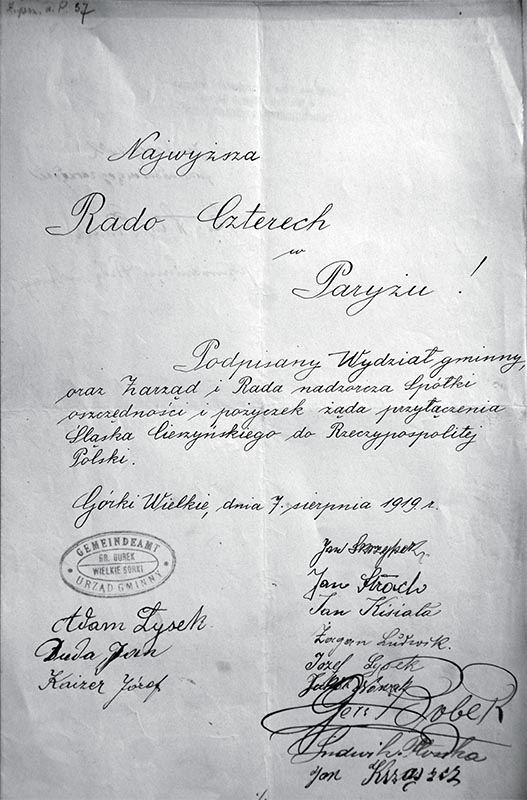 57
Najwyższa
Rado Czterech
w
Paryżu !
Podpisany Wydział gminny,
oraz Zarząd i Rada nadzorcza Spółki
oszczędności i pożyczek żąda przyłączenia
Śląska Cieszyńskiego do Rzeczypospolitej
Polski.
Górki Wielkie, dnia 7. sierpnia 1919 r.
GEMEINDEAMT
GR. GUREK
WIELKIE GÓRKI
URZĄD GMINNY
Adam Łysek
Duda Jan
Kaizer Józef
Jan Skrzypek
Jan Strach
Jan Kisiała
Żagan Ludwik.
Józef Łysek
Bober
Ludwik
Jan Krząszcz